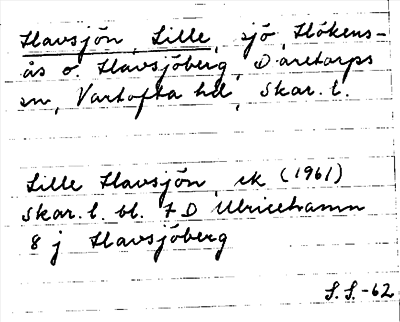 Havsjön, Lille, sjö, Hökens-
ås o. Havsjöberg, Daretorps
sn, Vartofta hd, Skar. l.
Lille Havsjön ek (1961)
Skar. l. bl. 7 D Ulricehamn
8 j Havsjöberg
S.S.-62